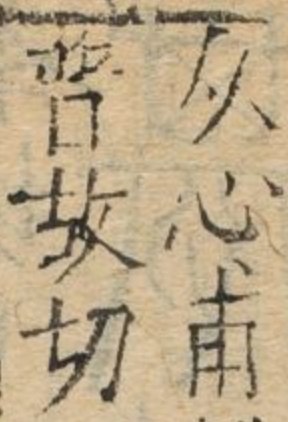 从心甫
普故切